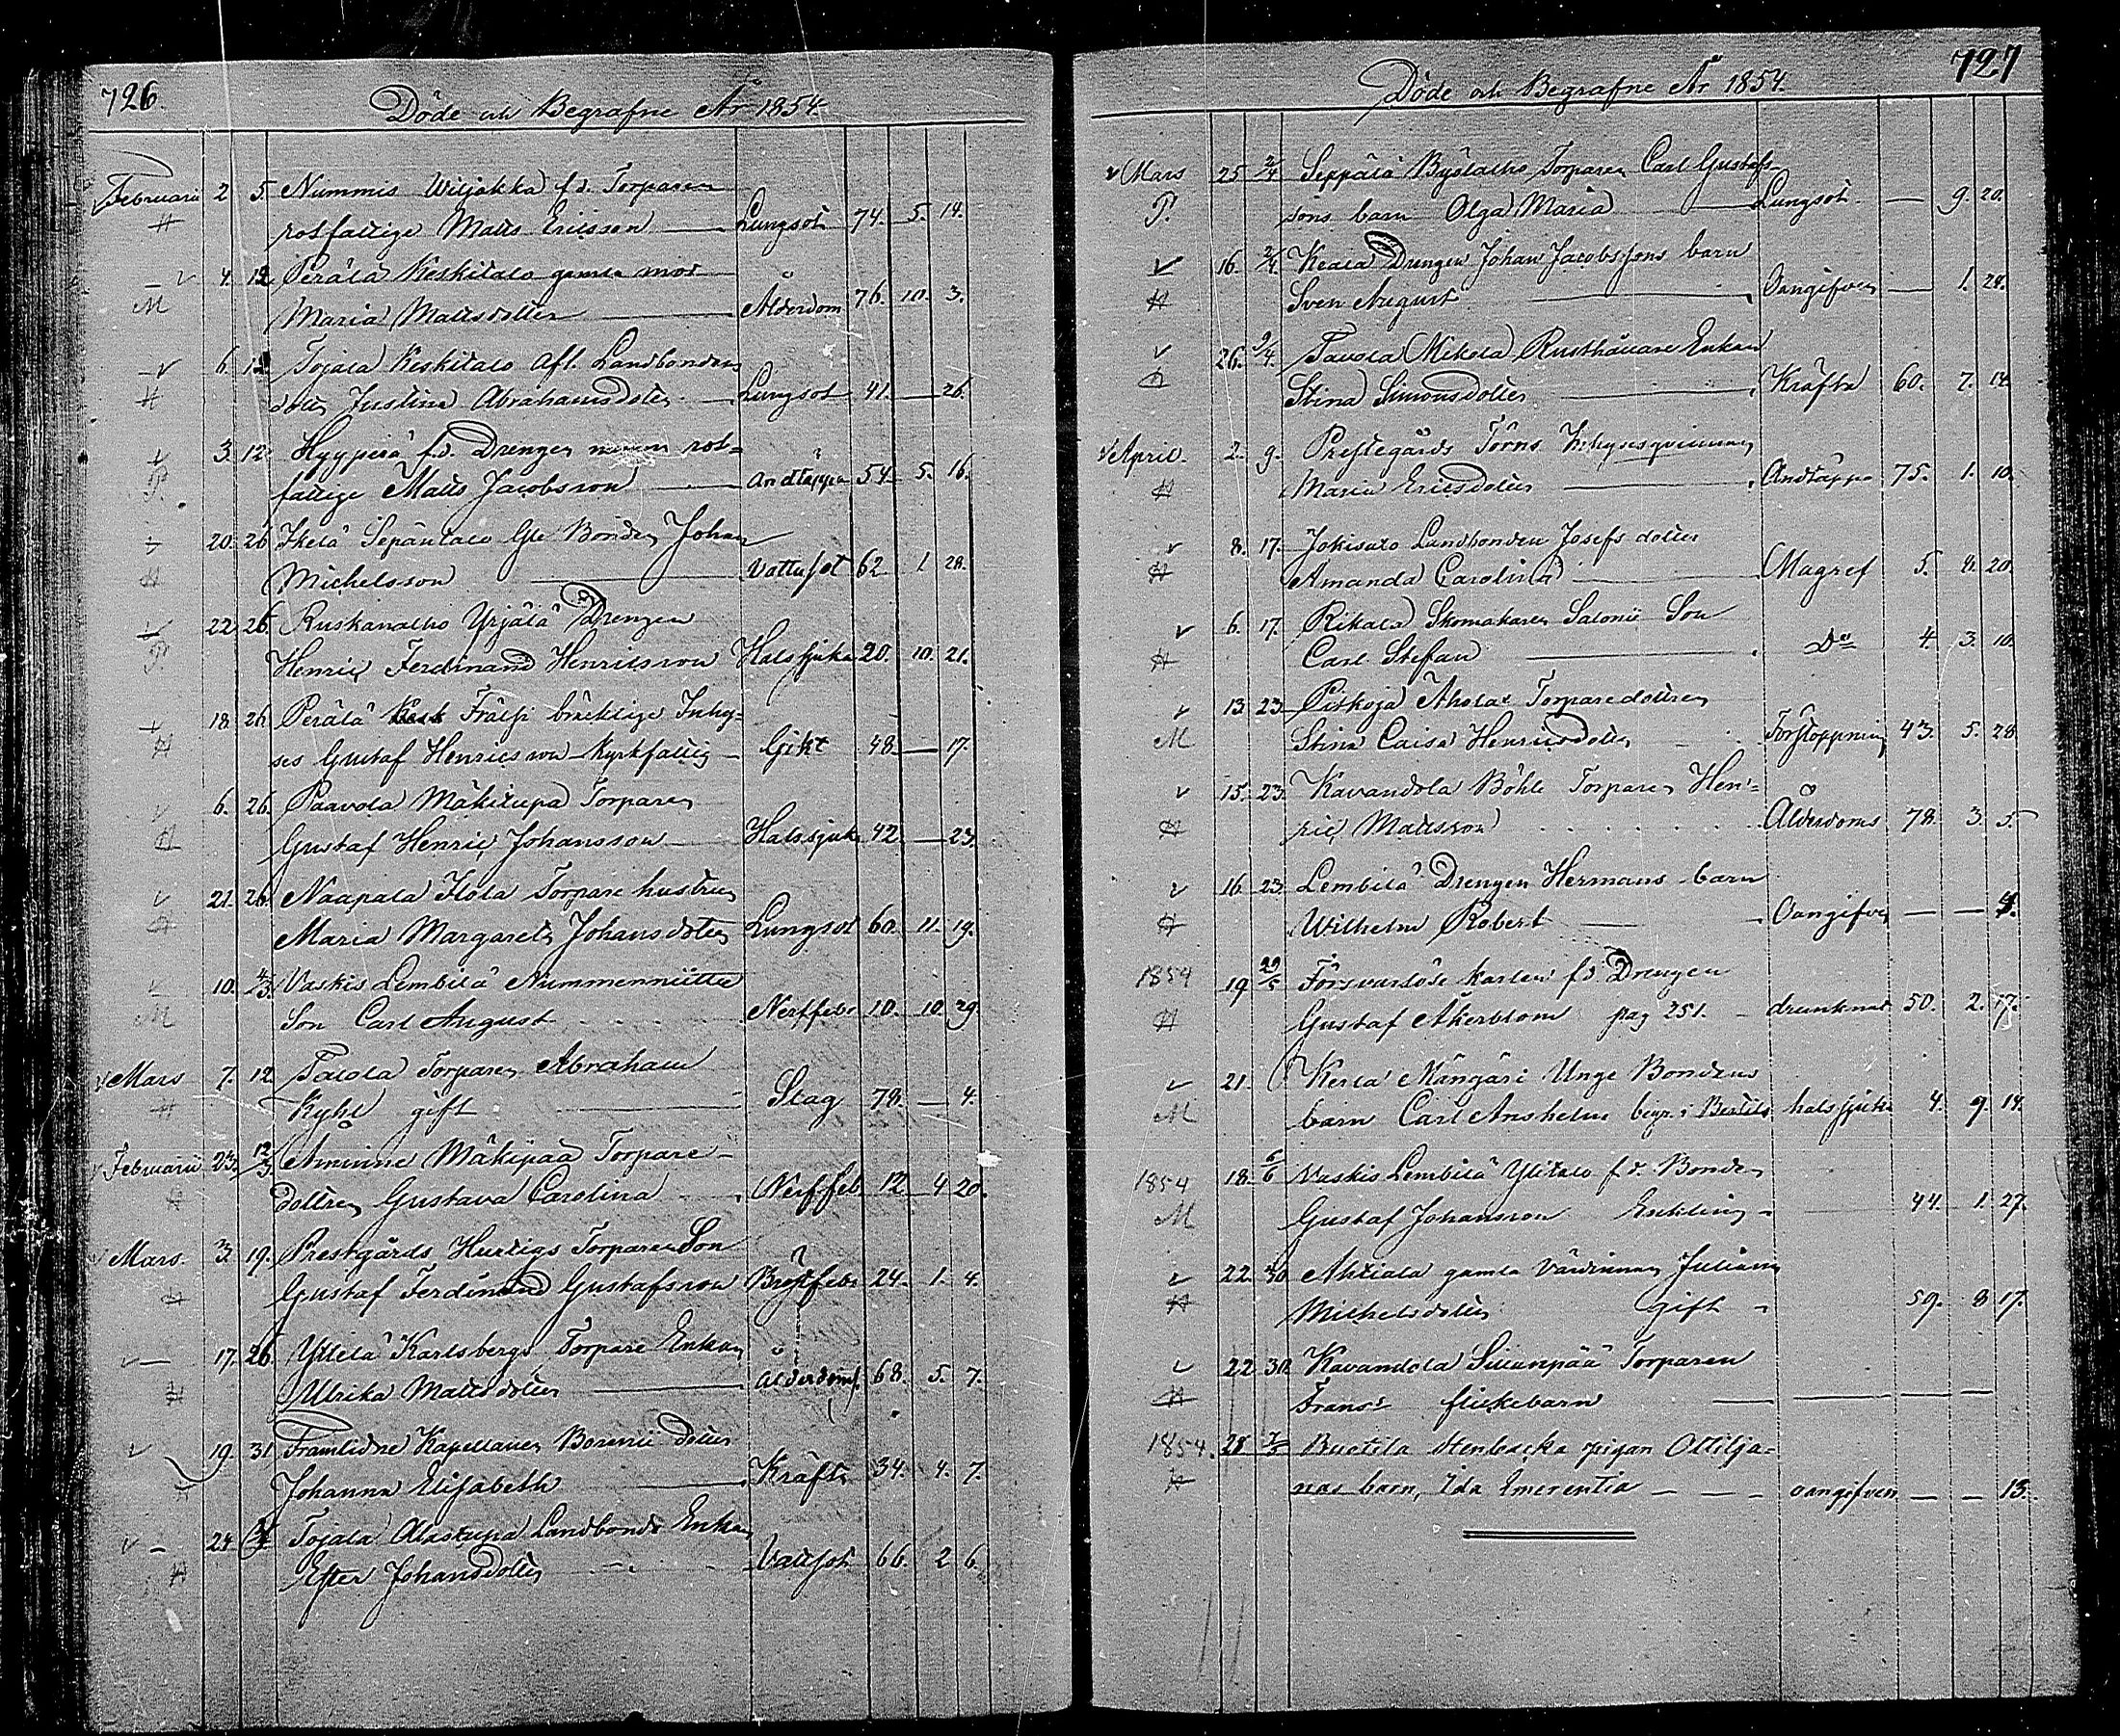 726.
Döde och Begrafne År 1854.
Februarii 2 5. Nummis Wiljakka f.d. Torparen
rotfattige Matts Ericsson Lungsot 74. 5. 14.
4. 12 Perälä Keskitalo gamla mor
M Maria Mattsdotter Ålderdom 76. 10. 3.
6. 12 Tojala Keskitalo Afl. Landbondens
dotter Justina Abrahamsdotter Lungsot 41. — 26.
3. 12. Hyyperä f.d. Drengen rot-
P. fattige Matts Jacobsson Andtäppa 54. 5. 16.
20. 26 Ikelä Sepäntalo Gle Bonden Johan
Michelsson Vattusot 62 1 28.
22. 26. Ruskanalho Yrjälä Drengen
P. Henric Ferdinand Henricsson Halssjuka 20. 10. 21.
18. 26. Perälä Frälsi bräcklige Inhy-
ses Gustaf Henricsson Kyrkfattig Gikt 48. — 17.
6. 26. Paavola Mäkitupa Torparen
Gustaf Henric Johansson Halssjuka 42. — 23.
21. 26 Naapala Flola Torpare hustrun
Maria Margareta Johansdotter Lungsot 60. 11. 19.
10. 4/3. Vaskis Lembilä Nummenniittu
M Son Carl August Nerffeber 10. 10. 29.
Mars 7. 12 Talola Torparen Abraham
Kyhl gift Slag 78. — 4.
Februarii 24. 12/3 Aminne Mäkipää Torpare-
dottren Gustava Carolina Nerffeb. 12 4 20.
Mars. 3. 19. Prestgårds Hurtigs Torparen Son
Gustaf Ferdinand Gustafsson Bröstfeber 24. 1. 4.
17. 26. Yltelä Karlsbergs Torpare Enkan
Ulrika Mattsdotter Ålderdoms 68. 5. 7.
19. 31. Framlidne Kapellanen Borenii dotter
Johanna Elisabeth Kräfta 34. 4. 7.
24. Tojala Alastupa Landbonde Enkan
Ester Johansdotter Vattsot 66. 2 6.
727
Döde och Begrafne År 1854.
Mars 25 2/4 Seppälä Byölalho Torparen Carl Gustafs-
P. sons barn Olga Maria Lungsot — 9. 20.
16. 2/4. Keala Drengen Johan Jacobssons barn
Sven August Oangifven — 1. 24.
26. 9/4 Tavola Mikola Rusthållare Enkan
Stina Simonsdotter Kräfta 60. 7. 14.
April. 2. 9. Prestegårds Törns Inhysesqvinnan
Maria Ericsdotter Andtäppa 75. 1. 10.
8. 17. Jokisalo Landbonden Josefs dotter
Amanda Carolina Magref 5. 8. 20.
6. 17. Rikala Skomakaren Salonii Son
Carl Stefan Do 4. 3. 10.
13 23 Piskoja Ahola Torparedottren
M Stina Caisa Henricsdotter Förstoppning 43. 5. 28
15. 23. Kavandola Böhle Torparen Hen-
ric Mattsson Ålderdoms 78. 3 5.
16. 23. Lembilä Drengen Hermans barn
Wilhelm Robert Oangifven — — 4.
1854 19 29/5 Försvarslöse karlen f.d. Drengen
Gustaf Åkerblom pag 251. drunknat 50. 2. 17.
21. Kerla Mängäri Unge Bondens
M barn Carl Anshelm begr. i Bertils halssjuka 4. 9. 14.
1854 18. 5/6 Vaskis Lembilä Ylitalo f.d. Bonden
M Gustaf Johansson Enkling 44. 1. 27.
22. 30 Ahtiala gamla Värdinnan Juliana
Michelsdotter gift 59. 8 17.
22 30. Kavandola Siltanpää Torparen
Frans's flickebarn
1854. 28 7/5 Buotila Stenbacka pigan Ottilja-
nas barn, Ida Emerentia oangifven — — 13.